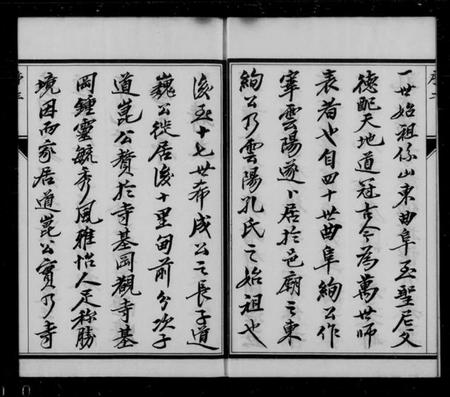 一世始祖係山東曲阜至聖尼父
德配天地道冠古今為萬世師
表者也自四十世曲阜絢公作
宰雲陽遂卜居於邑廟之東
絢公乃雲陽孔氏之始祖也
後至十七世希成公之長子道
巍公徙居後十里甸前分次子
道崑公贅於寺基岡觀寺基
岡鍾靈毓秀風雅怡人足称勝
境因而家居道崑公實乃寺